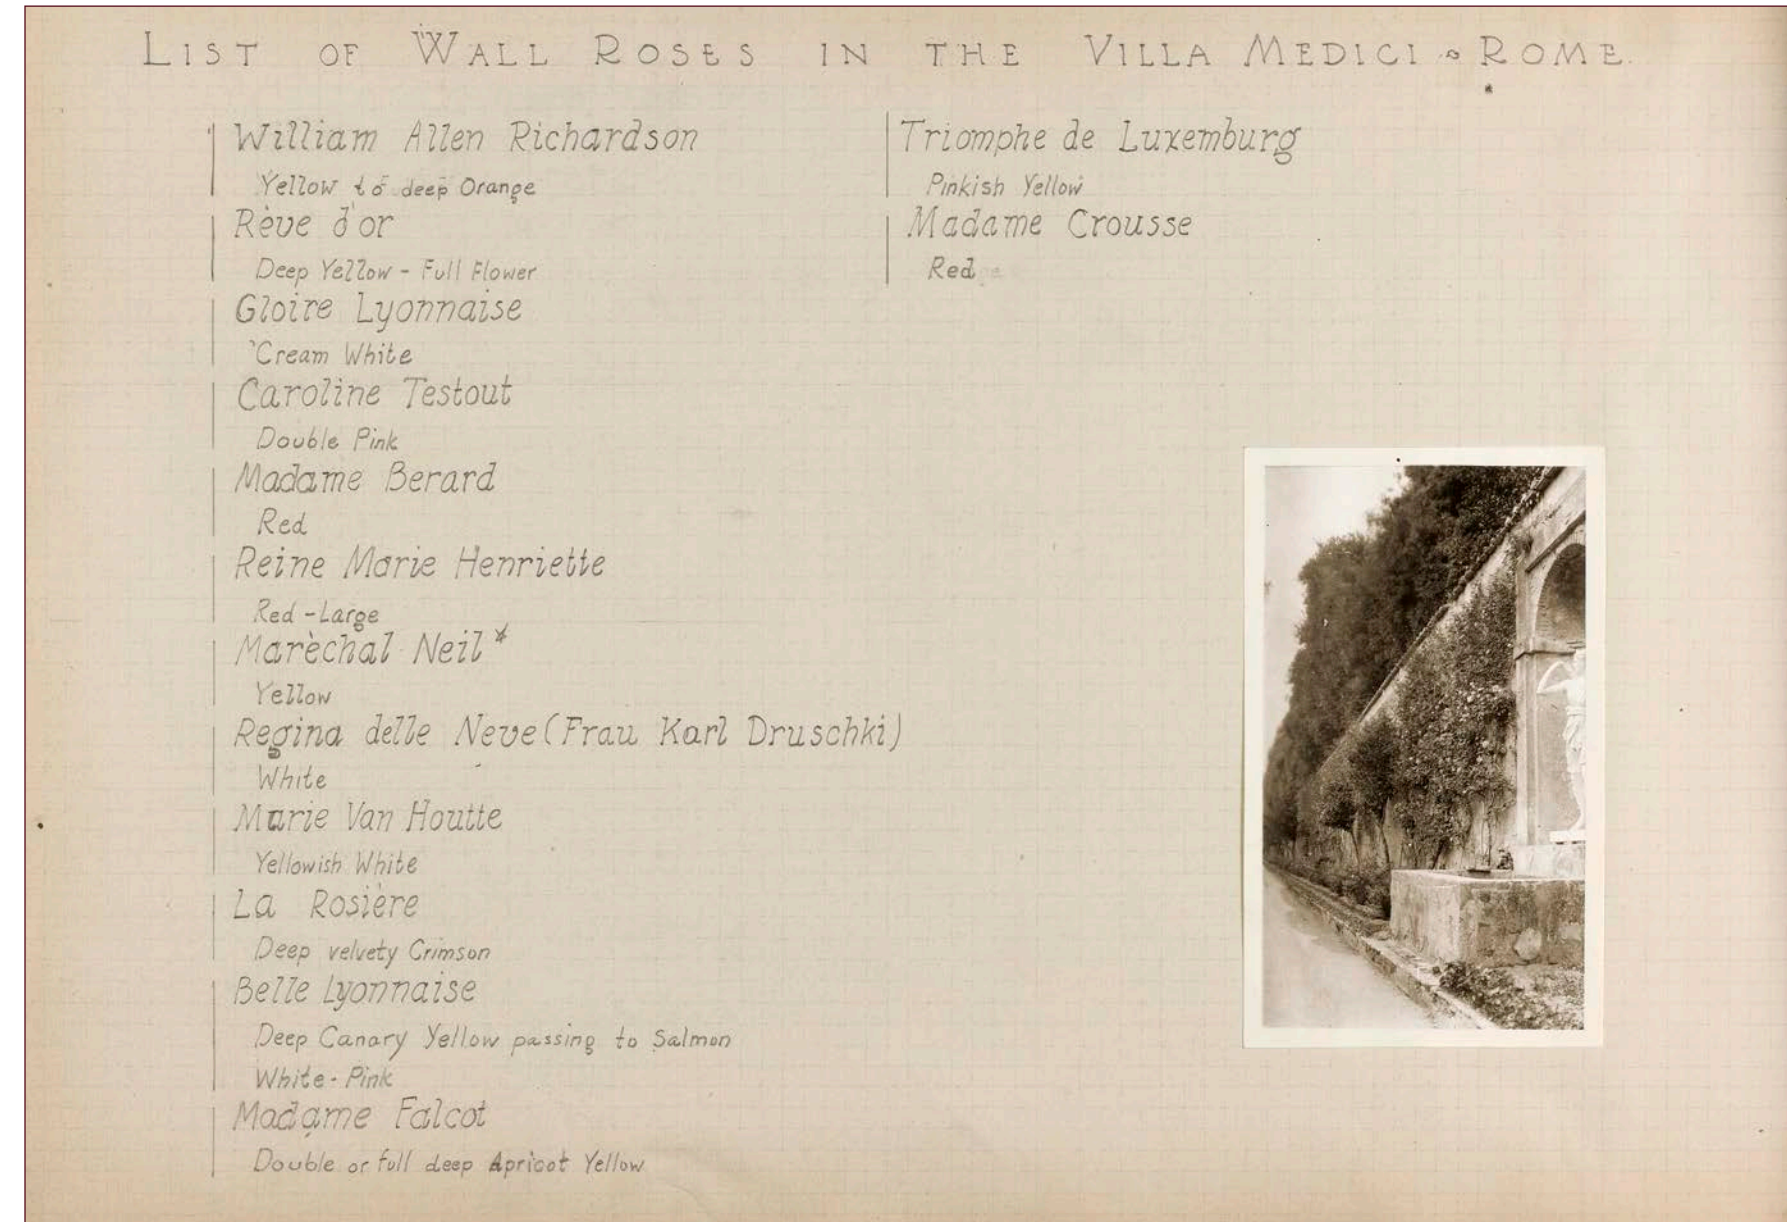 LIST OF WALL ROSES IN THE VILLA MEDICI ~ ROME.
William Allen Richardson
Yellow to deep Orange
Rève d'or
Deep Yellow - Full Flower
Gloire Lyonnaise
Cream White
Caroline Testout
Double Pink
Madame Berard
Red
Reine Marie Henriette
Red - Large
Marèchal Neil*
Yellow
Regina delle Neve (Frau Karl Druschki)
White
Marie Van Houtte
Yellowish White
La Rosière
Deep velvety Crimson
Belle Lyonnaise
Deep Canary Yellow passing to Salmon
White - Pink
Madame Falcot
Double or full deep Apricot Yellow
Triomphe de Luxemburg
Pinkish Yellow
Madame Crousse
Red